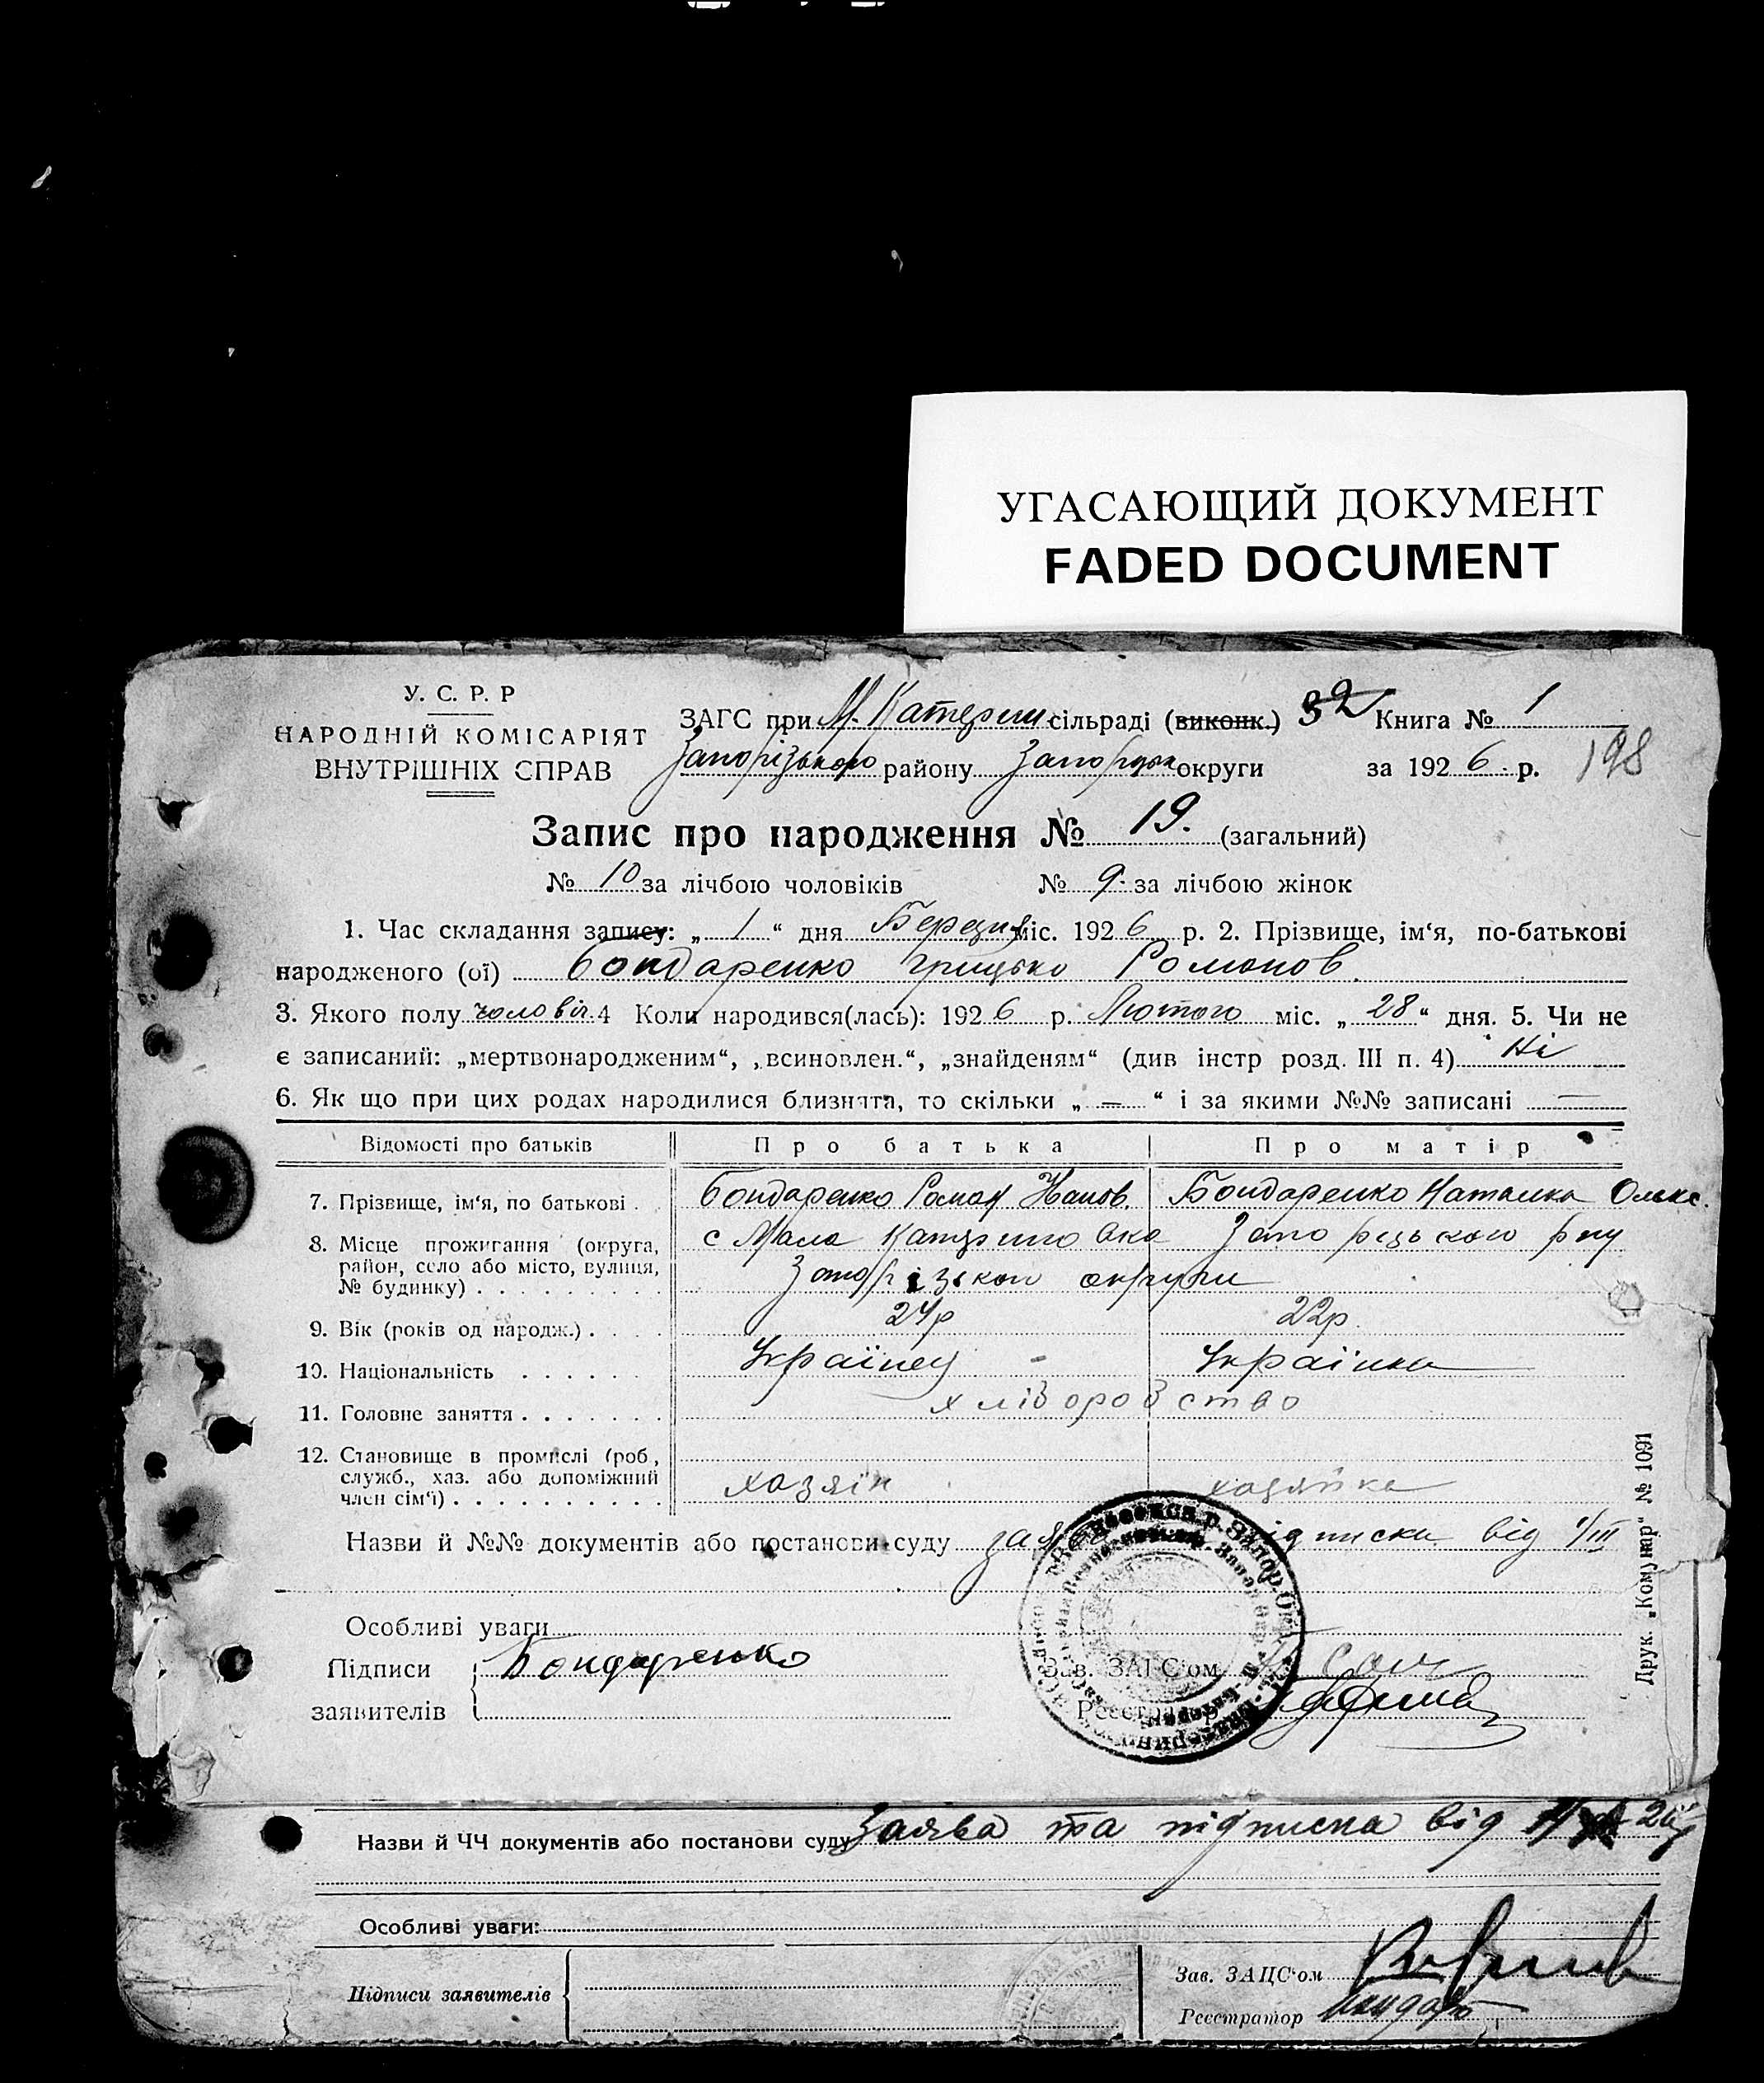 УГАСАЮЩИЙ ДОКУМЕНТ
FADED DOCUMENT
У. С. Р. Р
НАРОДНІЙ КОМІСАРІЯТ
ВНУТРІШНІХ СПРАВ
ЗАГС при М. Катерин. сільраді (виконк.) 32 Книга № 1
Запорізького району Запорізьк округи за 1926 р. 198
Запис про народження № 19. (загальний)
№ 10 за лічбою чоловіків № 9. за лічбою жінок
1. Час складання запису: „ 1 “ дня Березня міс. 1926 р. 2. Прізвище, ім‘я, по-батькові
народженого (ої) Бондаренко Грицько Романов
3. Якого полу чоловіч. 4 Коли народився(лась): 1926 р. Лютого міс. „ 28 “ дня. 5. Чи не
є записаний: „мертвонародженим“, „всиновлен.“, „знайденям“ (див інстр розд. III п. 4) Ні
6. Як що при цих родах народилися близнята, то скільки „ — “ і за якими №№ записані —
Відомості про батьків Про батька Про матір
7. Прізвище, ім‘я, по батькові . Бондаренко Роман Иванов. Бондаренко Наталка Олекс.
8. Місце прожигання (округа, район, село або місто, вулиця, № будинку) с Мала Катерино вка Запорізького р-ну
Запорізькои округи
9. Вік (років од народж.) 24р 22р.
10. Національність Українец - Українка
11. Головне заняття хліборобство
12. Становище в промислі (роб., служб., хаз. або допоміжний член сім‘ї) хазяїн хазяйка
Назви й №№ документів або постанови суду підписка від 1/III
Особливі уваги
Підписи заявителів Бондаренко
Зав. ЗАГС‘ом
Реєстратор
Друк. „Комунар“ № 1091
Назви й ЧЧ документів або постанови суду Заява та підписка від
Особливі уваги:
Підписи заявителів
Зав. ЗАЦС‘ом
Реєстратор